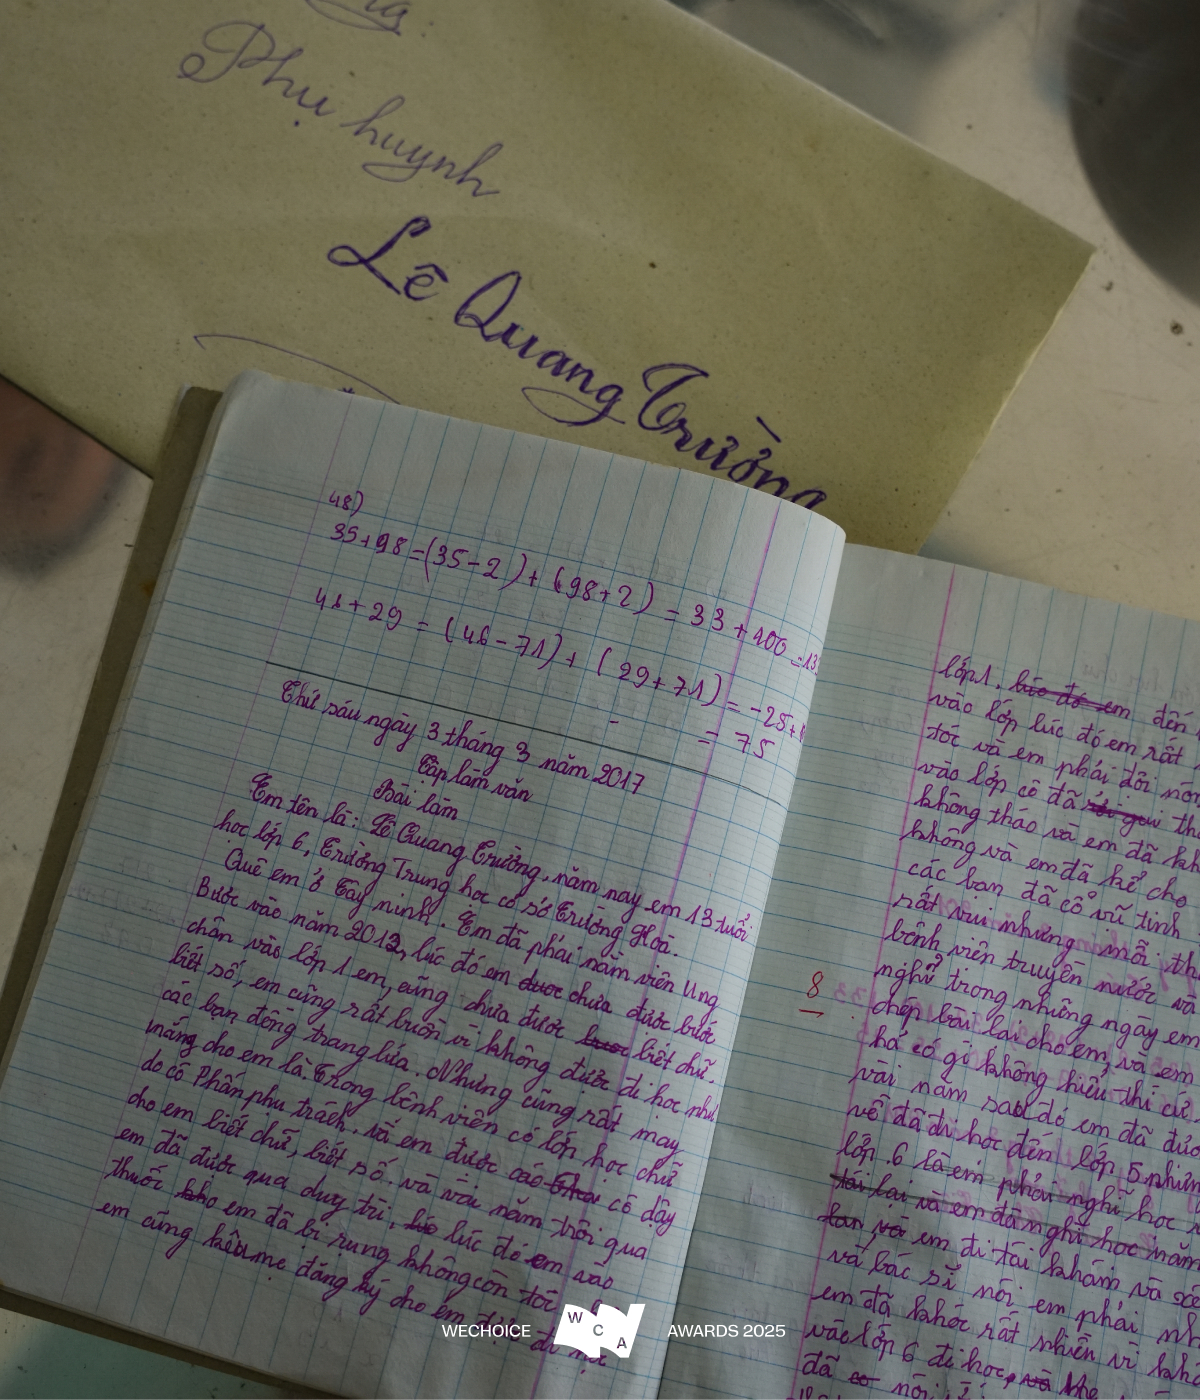 Phụ huynh
Lê Quang Trưởng
48)
35+98=(35-2)+(98+2) = 33+100 =13
46+29 = (46-71)+(29+71) = -25+
= 75
Thứ sáu ngày 3 tháng 3 năm 2017
Tập làm văn
Bài làm
Em tên là: Lê Quang Trưởng, năm nay em 13 tuổi
học lớp 6, Trường Trung học cơ sở Trường Hoà.
Quê em ở Tây ninh. Em đã phải nằm viên Ung
Bước vào năm 2012, lúc đó em được chưa được bước
chân vào lớp 1 em, cũng chưa được biết chữ.
biết số, em cũng rất buồn vì không được đi học như
các bạn đồng trang lứa. Nhưng cũng rất may
mắng cho em là. Trong bệnh viên có lớp học chữ
do cô Phấn phụ trách. và em được các cô dậy
cho em biết chữ, biết số. và vài năm trôi qua
em đã được qua duy trì, lúc đó em vào
thuốc em đã bị rụng không còn tóc
em cũng kêu mẹ đăng ký cho em được đi học
lớp1. lúc đó em đến
vào lớp lúc đó em rất
tóc và em phải đội nón
vào lớp cô đã
không tháo và em đã
không và em đã kể cho
các bạn đã cổ vũ tinh
rất vui nhưng mỗi
bệnh viên truyền nước và
nghĩ trong những ngày em
8
chép bài lại cho em, và em
há có gì không hiểu thì cứ
vài năm sau đó em đã đươ
về đã đi học đến lớp 5 nhưn
lớp 6 là em phải nghĩ học
tái lại và em đã nghĩ học năm
em đi tái khám và
và bác sĩ nói em phải
em đã khóc rất nhiều vì
vào lớp 6 đi học, và
đã nói
WECHOICE
W C A
AWARDS 2025